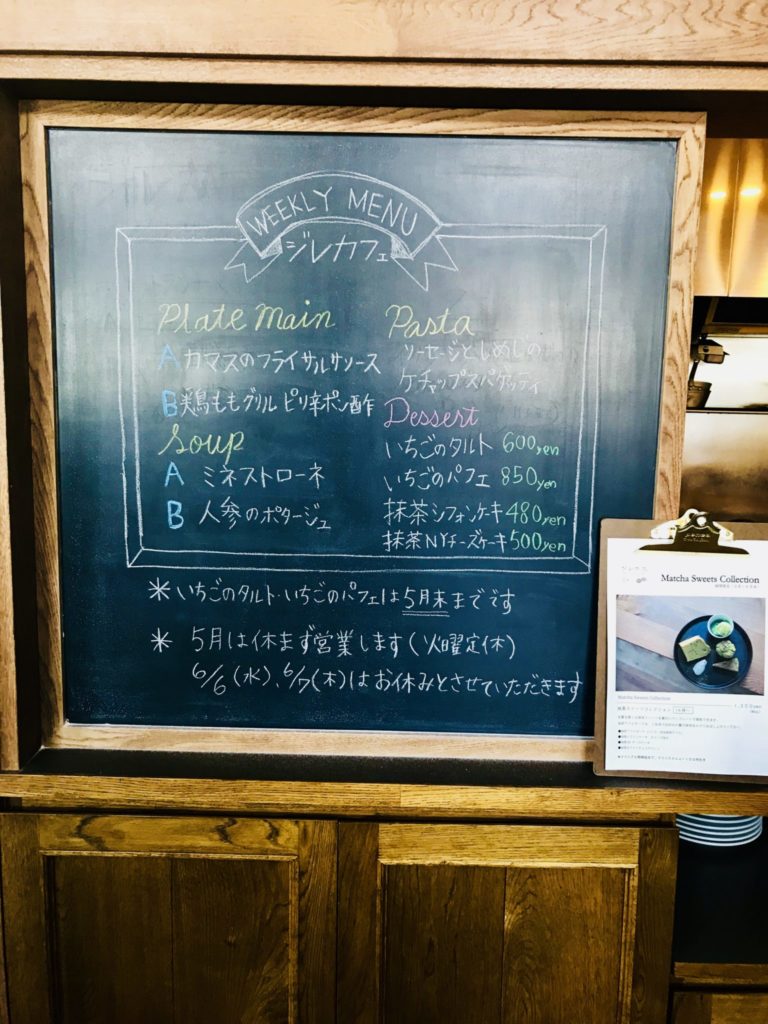 WEEKLY MENU
ジレカフェ
Plate Main
A カマスのフライサルサソース
B 鶏ももグリル ピリ辛ポン酢
Soup
A ミネストローネ
B 人参のポタージュ
Pasta
ソーセージとしめじの
ケチャップスパゲッティ
Dessert
いちごのタルト 600yen
いちごのパフェ 850yen
抹茶シフォンケーキ 480yen
抹茶NYチーズケーキ 500yen
＊いちごのタルト・いちごのパフェは5月末までです
＊ 5月は休まず営業します(火曜定休)
6/6(水)、6/7(木)はお休みとさせていただきます
Matcha Sweets Collection
Matcha Sweets Collection